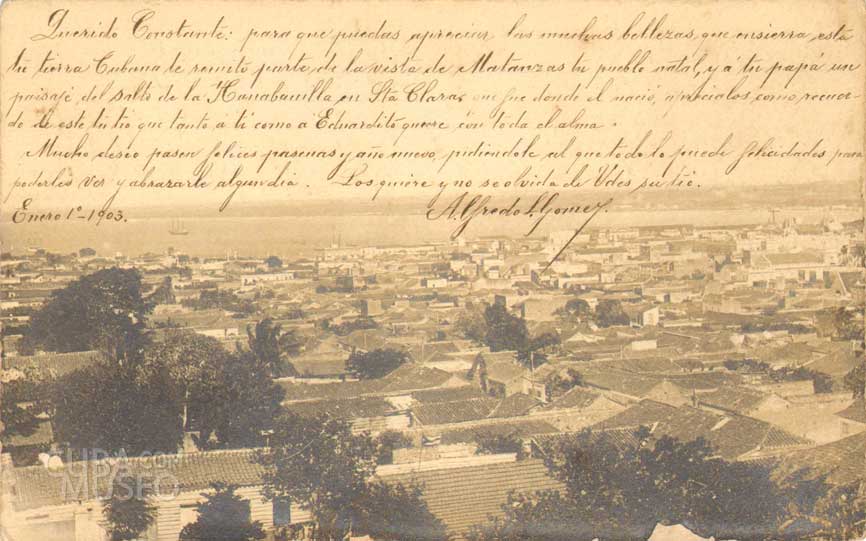 Querido Constante: para que puedas apreciar las muchas bellezas que ensierra esta
tu tierra Cubana te remito parte de la vista de Matanzas tu pueblo natal, y á tu papá un
paisaje del Salto de la Hanabanilla en Sta Clara, que fue donde el nació, aprécialos como recuer-
do de este tu tio que tanto á ti como a Eduardito quiere con toda el alma.
Mucho deseo pasen felices pascuas y año nuevo, pidiendole al que todo lo puede felicidades para
poderles ver y abrazarle algun dia. Los quiere y no se olvida de Vdes su tio.
Enero 1º-1903. Alfredo L. Gomez.
CUBA MUSEO